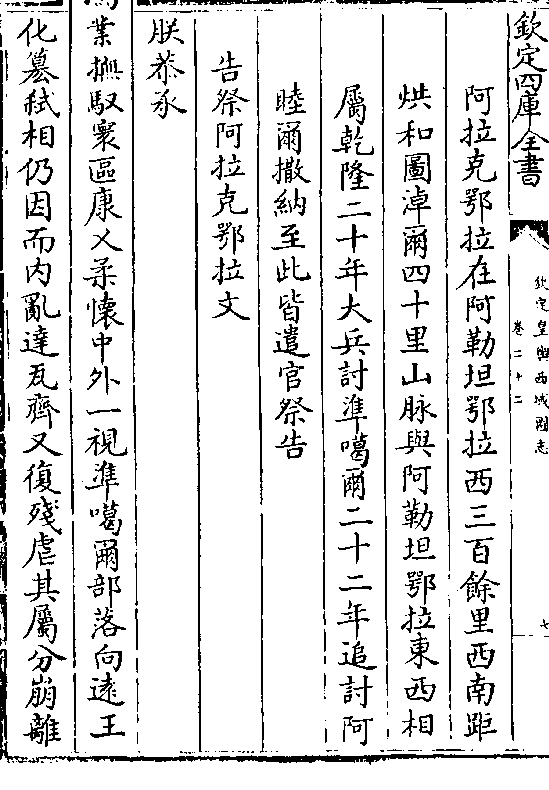 欽定四庫全書
欽定皇輿西域圖志
卷二十二
七
阿拉克鄂拉在阿勒坦鄂拉西三百餘里西南距
烘和圖淖爾四十里山脉與阿勒坦鄂拉東西相
屬乾隆二十年大兵討準噶爾二十二年追討阿
睦爾撒納至此皆遣官祭告
告祭阿拉克鄂拉文
朕恭承
業撫馭寰區康乂柔懷中外一視準噶爾部落向遠王
化簒弑相仍因而内亂達瓦齊又復殘虐其屬分崩離